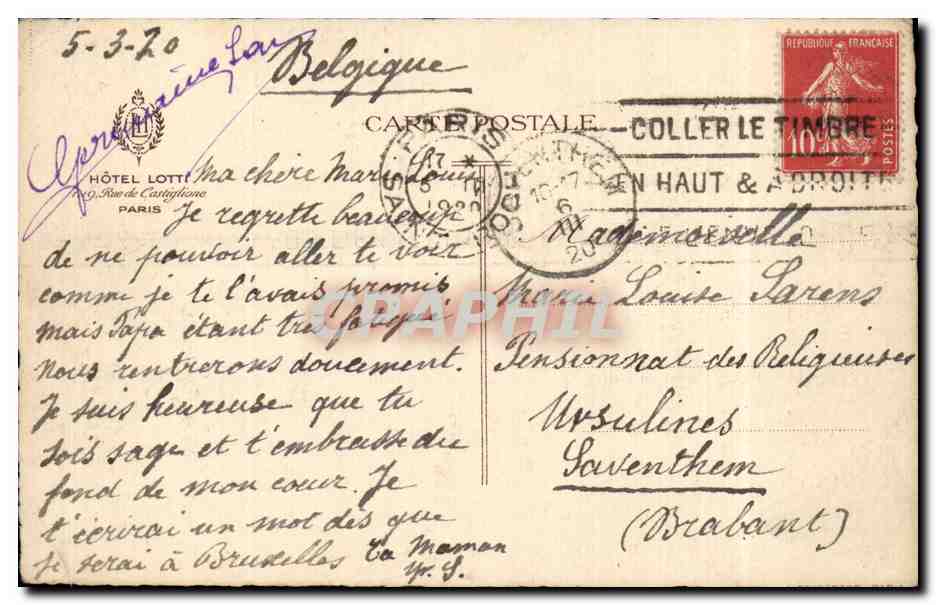 5-3-20
Belgique
Germaine
HÔTEL LOTTI
7 à 9, Rue de Castiglione
PARIS
CARTE POSTALE
REPUBLIQUE FRANÇAISE
10
POSTES
COLLER LE TIMBRE
EN HAUT & A DROITE
PARIS
1920
6
III
20
Ma chère Marie Louise
Je regrette beaucoup
de ne pouvoir aller te voir
comme je te l'avais promis
mais Papa étant très fatigué
nous rentrerons doucement.
Je suis heureuse que tu
sois sage et t'embrasse du
fond de mon cœur. Je
t'écrirai un mot dès que
je serai à Bruxelles
Ta Maman
Mademoiselle
Marie Louise Sarens
Pensionnat des Religieuses
Ursulines
Saventhem
(Brabant)
CPAPHIL